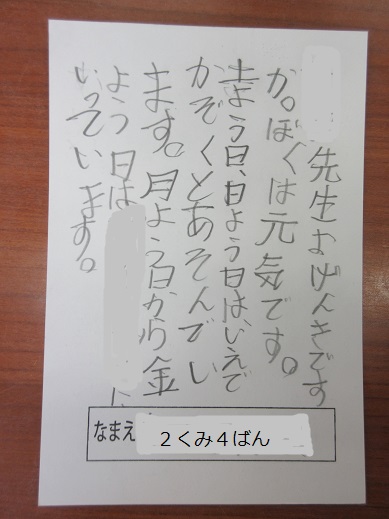 先生おげんきです
か。ぼくは元気です。
土よう日、日よう日は、いえで
かぞくとあそんでい
ます。月よう日から金
よう日は に
いっています。
なまえ 2くみ4ばん